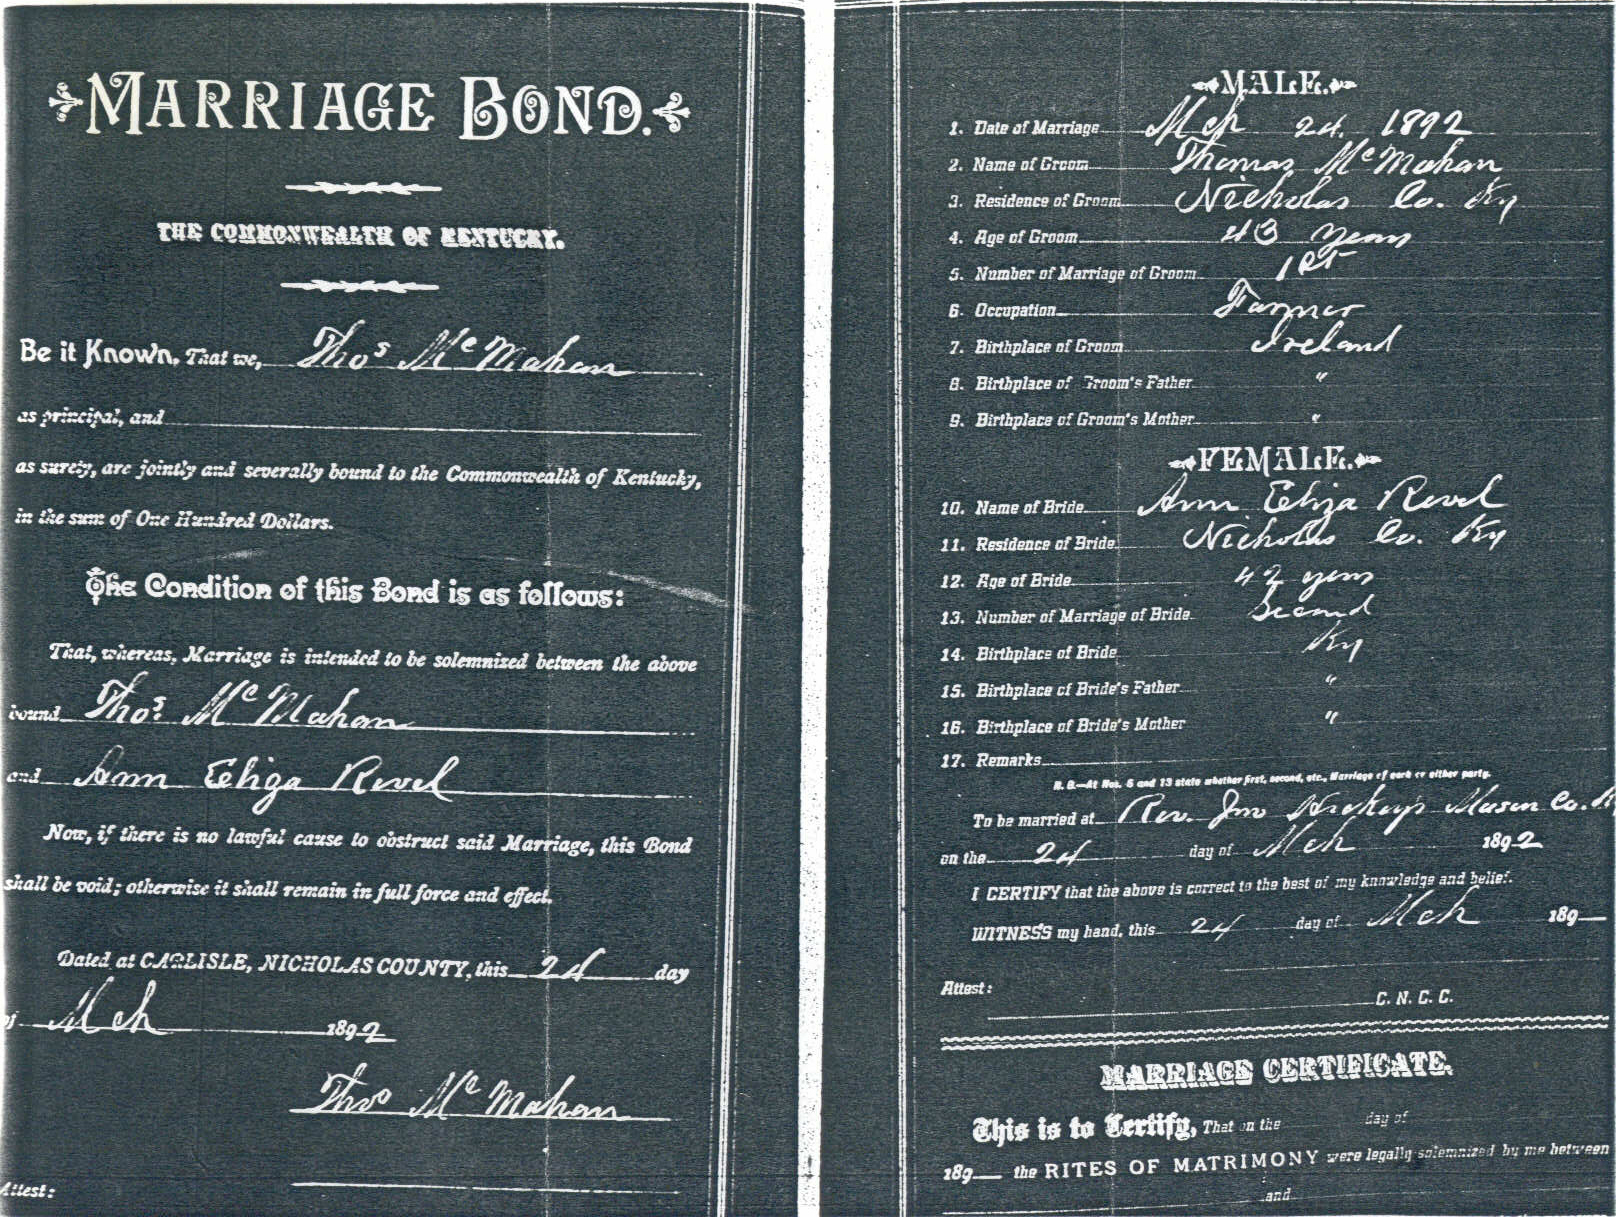 MARRIAGE BOND.
THE COMMONWEALTH OF KENTUCKY.
Be it Known, That we, Thos McMahan
as principal, and
as surely, are jointly and severally bound to the Commonwealth of Kentucky,
in the sum of One Hundred Dollars.
The Condition of this Bond is as follows:
That, whereas, Marriage is intended to be solemnized between the above
bound Thos. McMahan
and Ann Eliza Revel
Now, if there is no lawful cause to obstruct said Marriage, this Bond
shall be void; otherwise it shall remain in full force and effect.
Dated at CARLISLE, NICHOLAS COUNTY, this 24 day
of Mch 1892
Thos McMahan
Attest:
MALE.
1. Date of Marriage Mch 24. 1892
2. Name of Groom Thomas McMahan
3. Residence of Groom Nicholas Co. Ky
4. Age of Groom 43 years
5. Number of Marriage of Groom 1st
6. Occupation Farmer
7. Birthplace of Groom Ireland
8. Birthplace of Groom's Father "
9. Birthplace of Groom's Mother "
FEMALE.
10. Name of Bride Ann Eliza Revel
11. Residence of Bride Nicholas Co. Ky
12. Age of Bride 42 years
13. Number of Marriage of Bride Second
14. Birthplace of Bride Ky
15. Birthplace of Bride's Father "
16. Birthplace of Bride's Mother "
17. Remarks
N. B.—At Nos. 5 and 13 state whether first, second, etc., Marriage of each or either party.
To be married at Rev. Jno Hickey's Mason Co.
on the 24 day of Mch 1892
I CERTIFY that the above is correct to the best of my knowledge and belief.
WITNESS my hand, this 24 day of Mch 189
Attest:
C. N. C. C.
MARRIAGE CERTIFICATE.
This is to Certify, That on the day of
189 the RITES OF MATRIMONY were legally solemnized by me between
and